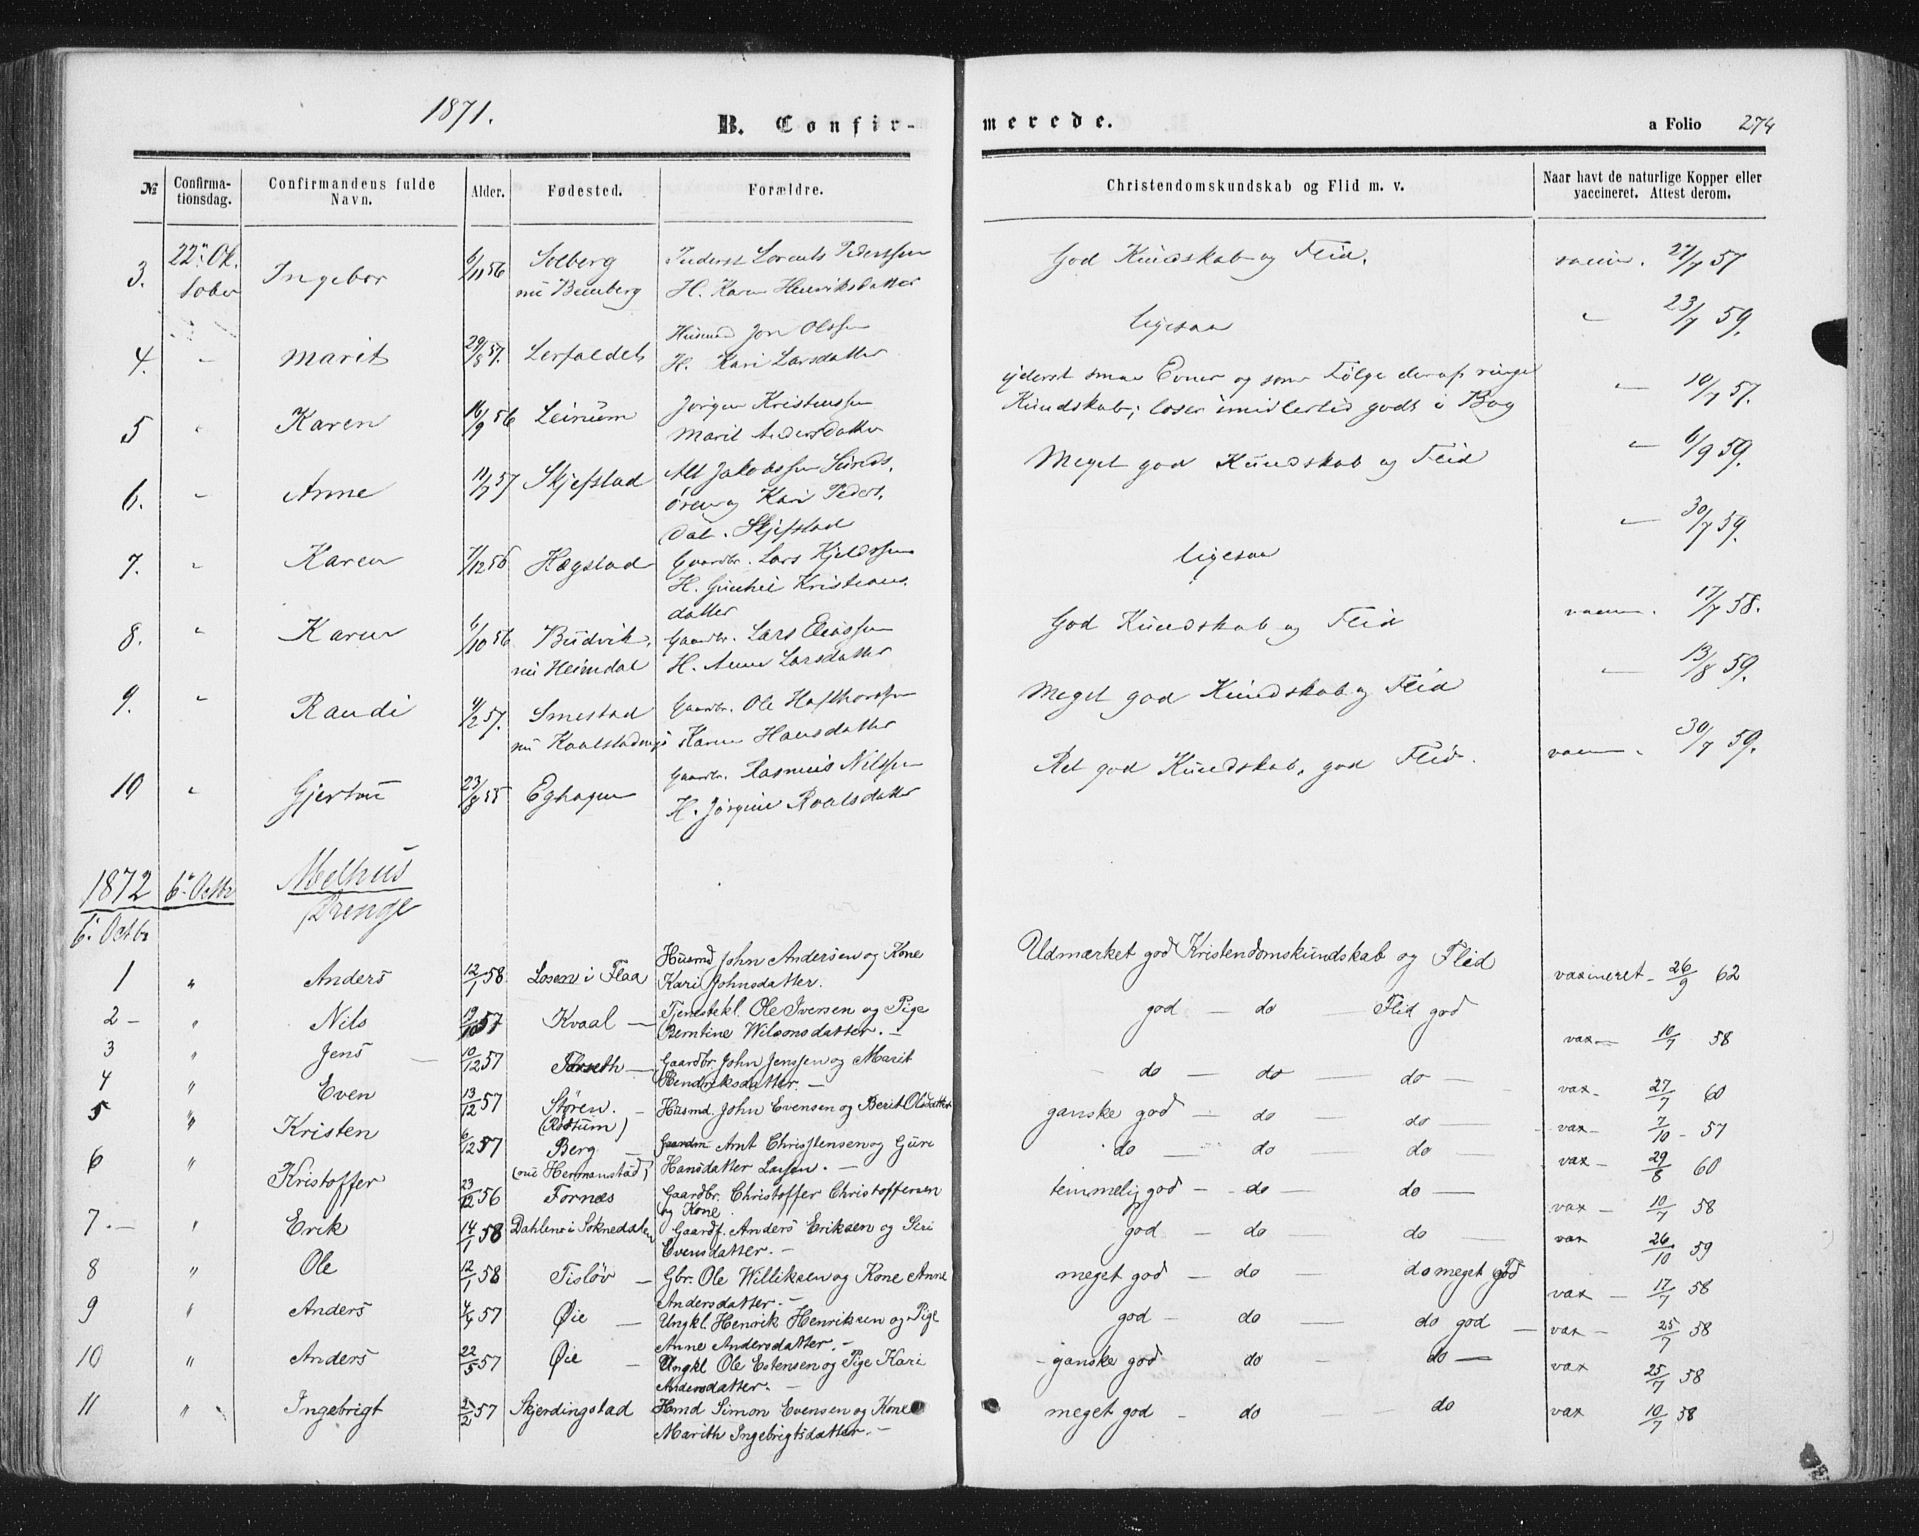 1871.
B. Confirmerede.
a Folio 274
№
Confirmationsdag.
Confirmandens fulde Navn.
Alder.
Fødested.
Forældre.
Christendomskundskab og Flid m. v.
Naar havt de naturlige Kopper eller vaccineret. Attest derom.
3. 22n Oktober Ingebor 6/11 56 Solberg Lorents Pederssen God Kundskab og Flid. 27/7 57
nu H. Karen Henriksdatter
4. " Marit 29/8 57. Lerfaldet Husmd Jon Olssen ligesaa " 23/7 59.
H. Kari Larsdatter
5 " Karen 16/9 56 Leinum Jørgen Kristenssen yderst smaa Evner og som Følge deraf ringe " 10/7 57.
Marit Andersdatter Kundskab; læser imidlertid godt i Bog
6. " Anne 11/7 57 Skjefstad Jakobssen Sunds, Meget god Kundskab og Flid " 6/9 59.
øren og Kari Peders,
Dat. Skjefstad
7. " Karen 7/12 56 Hægstad Gaardbr. Lars Kjeldssen ligesaa " 30/7 59.
H. Kristians,
datter
8. " Karen 6/10 56 Budvik, Gaardbr. Lars Eliassen God Kundskab og Flid 17/7 58.
nu Heimdal H. Anne Larsdatter
9. " Randi 4/2 57. Smestad Gaardbr. Ole Hafthorssen Meget god Kundskab og Flid " 13/8 59.
nu Karen Hansdatter
10 " Gjertru 23/8 55 Eghagen Gaardbr. Rasmus Nilssen Ret god Kundskab, god Flid. 30/7 59.
H. Jørgine Roaldsdatter
1872 6. Octbr Melhus
6. Octbr Drenge
1 " Anders 12/1 58 Losen i Flaa Husmd John Andersen og Kone Udmærket god Kristendomskundskab og Flid vaxineret - 26/9 62
Kari Johnsdatter.
2 - " Nils 57 Kvaal - Tjenestekl. Ole Iversen og Pige god - do - Flid god vax - 10/7 58
Berntine Wilsonsdatter. -
3 " Jens - 10/12 57 Forseth - Gaardbr. John Jenssen og Marit - do - do - do - vax - 27/7 60
Hendriksdatter. -
4 " Even 13/12 57 Støren. - Husmd. John Evensen og Berit Olsdatter ganske god - do - do - vax - 7/10 - 57
(Rostum)
5 " Kristen 6/12 57 Berg - Gaardm Arnt Christensen og Guri do - do - do - vax - 29/8 60
(nu Hermanstad) Hansdatter Larsen. -
6 " Kristoffer 23/12 56 Fornæs Gaardbr. Christoffer Christoffersen temmelig god - do - do - vax - 10/7 58
og Kone.
7. - " Erik 14/1 58 Dahlene i Soknedalen Gaardf. Anders Eriksen og Siri god - do - do - vax 26/10 59
Evensdatter. -
8 " Ole 12/1 58 Tisløv - Gbr. Ole Williksen og Kone Anne meget god - do - do meget god vax - 17/7 58
Andersdatter. -
9 " Anders 57 Øie - Ungkl. Henrik Henriksen og Pige god - do - do god - vax - 25/7 58
Anne Andersdatter. -
10 " Anders 22/5 57 Øie - Ungkl Ole Estensen og Pige Kari - ganske god do - do - vax 25/7 58
Andersdatter. -
11 " Ingebrigt 2/2 57 Skjerdingstad Hmd Simon Evensen og Kone meget god - do - do vax 10/7 58
Marith Ingebrigtsdatter. -